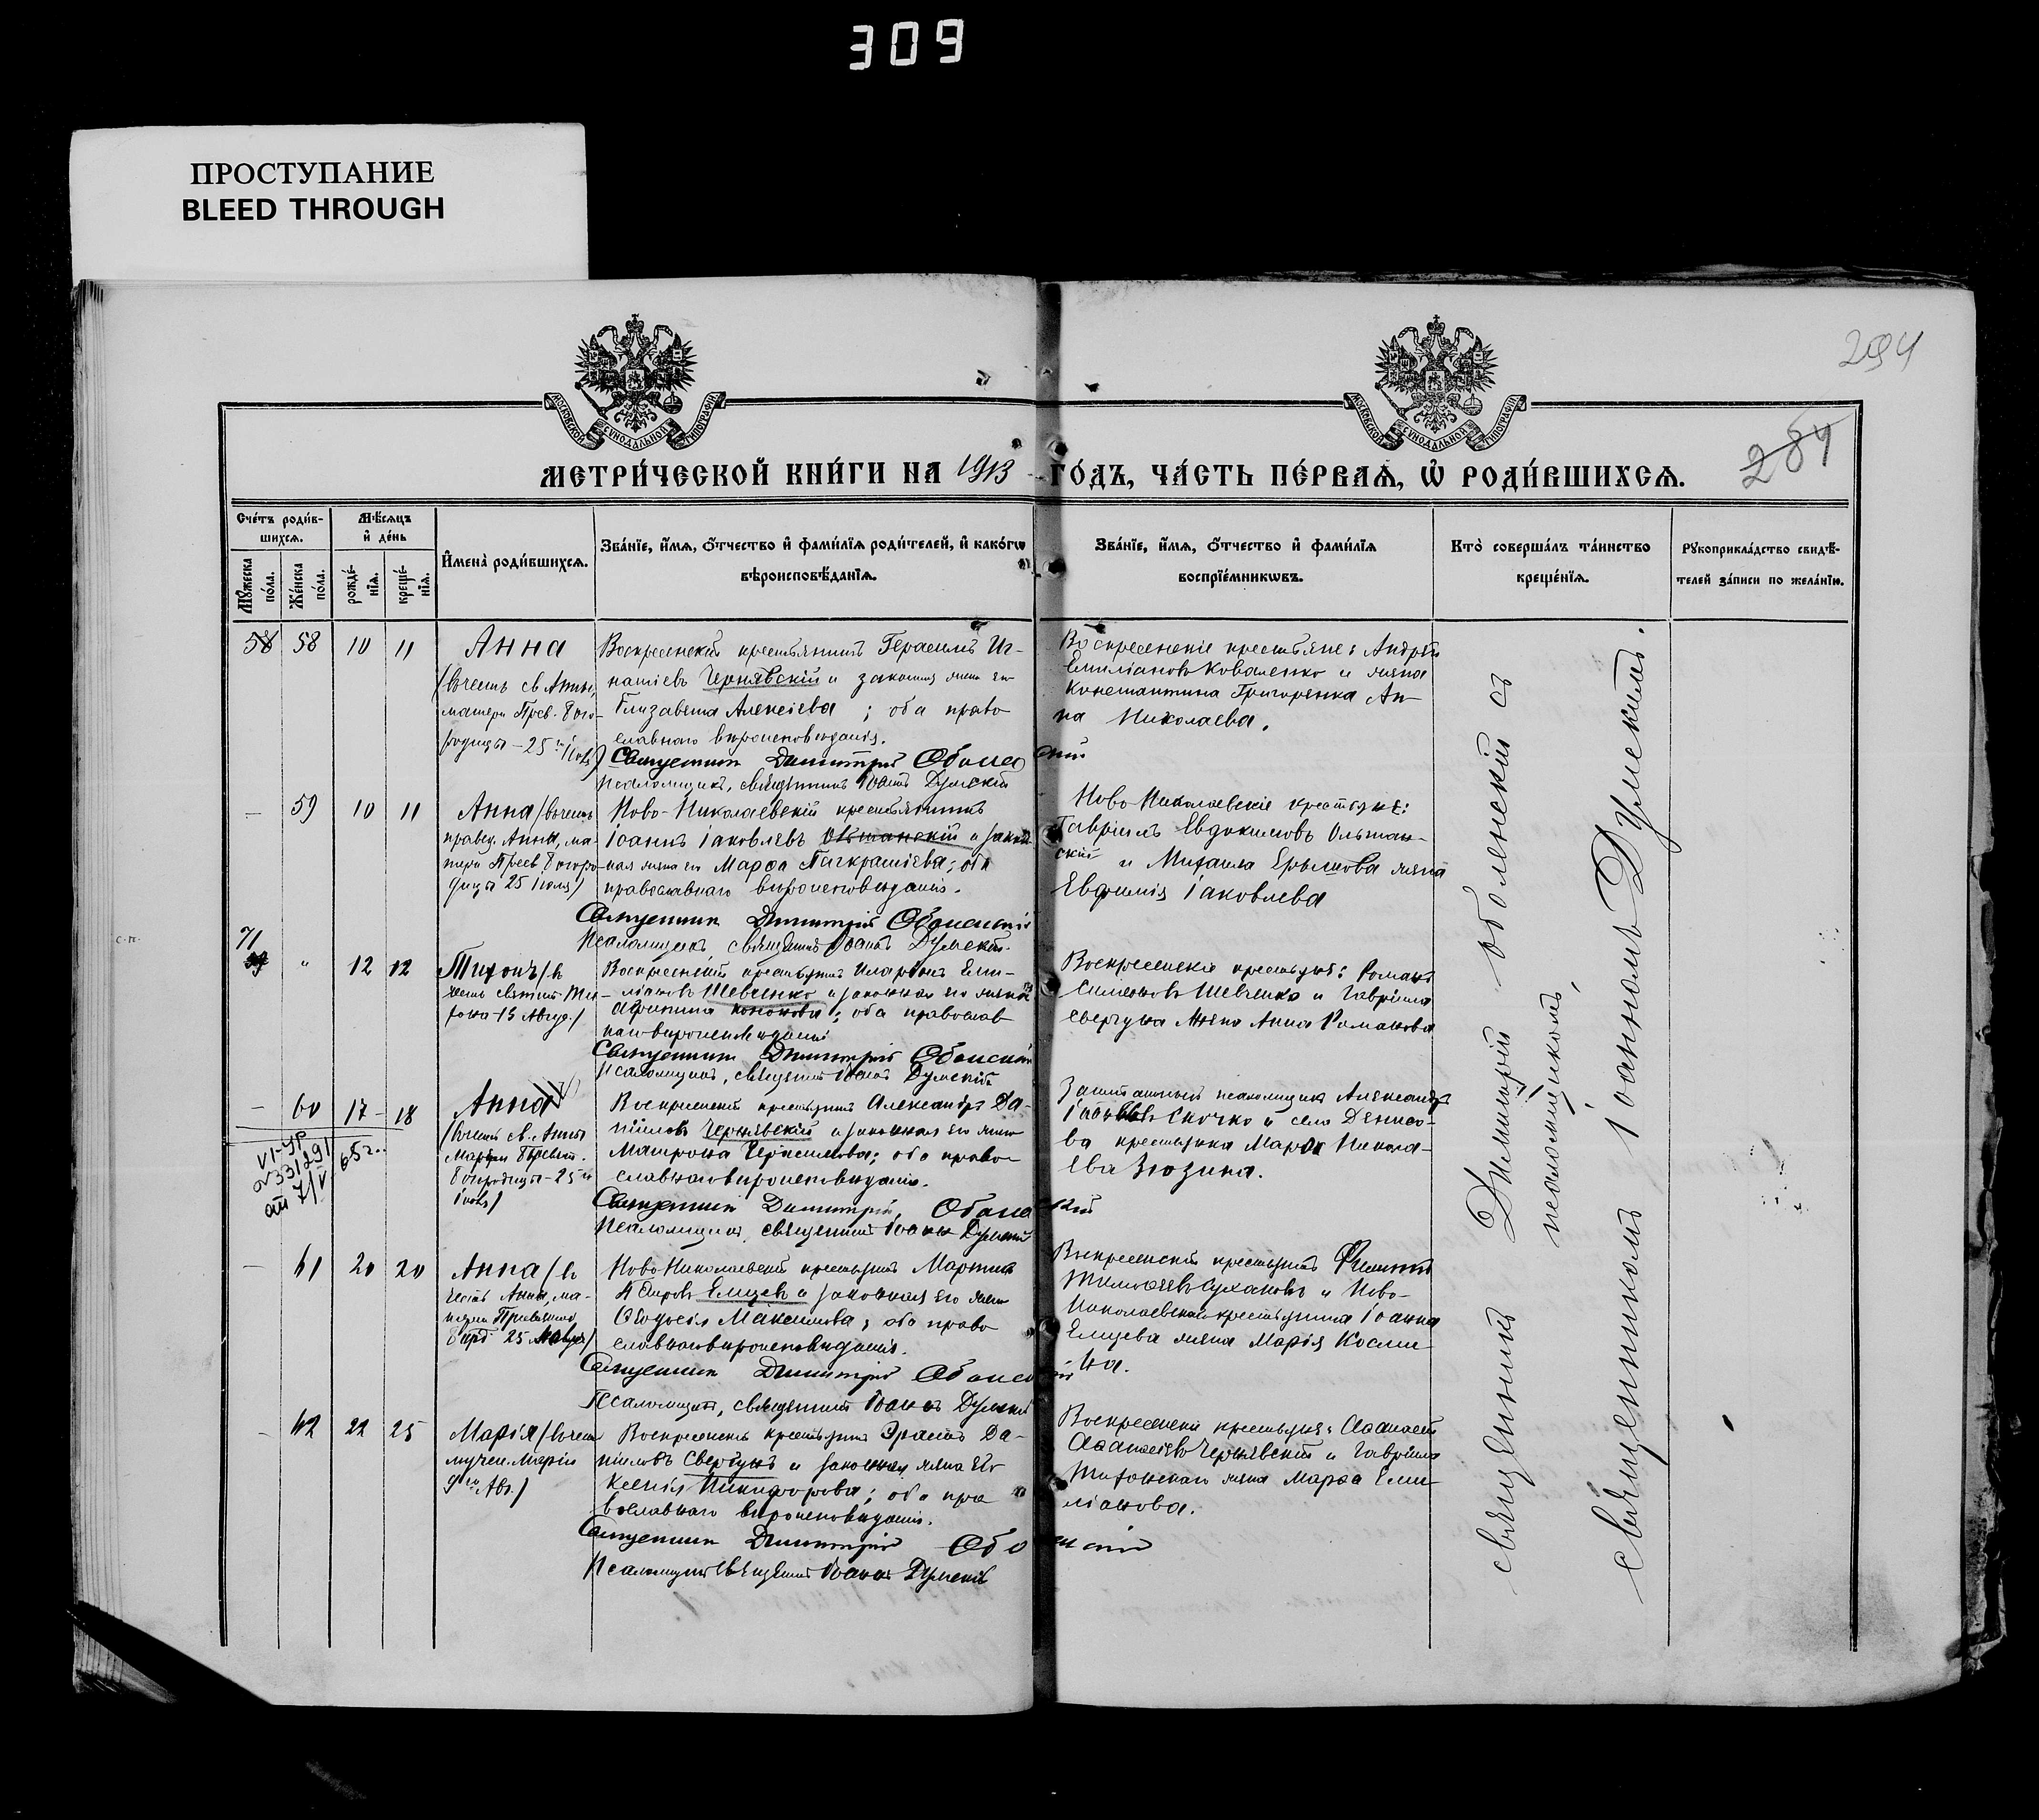 309
ПРОСТУПАНИЕ
BLEED THROUGH
294
МОСКОВСКОЙ СѴНОДАЛЬНОЙ ТИПОГРАФІИ
МОСКОВСКОЙ СѴНОДАЛЬНОЙ ТИПОГРАФІИ
284
МЕТРИ́ЧЕСКОЙ КНИ́ГИ НА 1913 ГО́ДЪ, ЧА́СТЬ ПЕ́РВАѦ, Ѡ҆ РОДИ́ВШИХСѦ.
Сче́тъ роди́в-
шихсѧ.
Мꙋ́жеска по́ла.
Же́нска по́ла.
Мѣ́сѧцъ
и҆ де́нь
рожде́-
нїѧ.
креще́-
нїѧ.
И҆мена̀ роди́вшихсѧ.
Зва́нїе, и҆́мѧ, ѻ҆́тчество и҆ фами́лїѧ роди́телей, и҆ како́гѡ
вѣроисповѣ́данїѧ.
Зва́нїе, и҆́мѧ, ѻ҆́тчество и҆ фами́лїѧ
воспрїе́мникѡвъ.
Кто̀ соверша́лъ та́инство
креще́нїѧ.
Рꙋкоприкла́дство свидѣ́-
телей за́писи по жела́нїю.
58 58 10 11
Анна
(въ честь св Анны,
матери Прев. Бого-
родицы - 25 Іюля)
Воскресенскій крестьянинъ Герасимъ Иг-
натіевъ Чернявскій и законная жена его
Елизавета Алексіева; оба право
славнаго вѣроисповѣданія.
Священникъ Димитрій Оболенскій
Псаломщикъ, священникъ Іоаннъ Думскій
Воскресенскіе крестьяне: Андрей
Емиліановъ Коваленко и жена
Константина Григоренка Ан-
на Николаева.
— 59 10 11
Анна (въ честь
правед. Анны, ма-
тери Пресв. Богоро-
дицы 25 Іюля)
Ново-Николаевскій крестьянинъ
Іоаннъ Іаковлевъ Ольшанскій и закон-
ная жена его Марѳа Панкратіева; оба
православнаго вѣроисповѣданія.
Священникъ Димитрій Оболенскій
Псаломщикъ, священникъ Іоаннъ Думскій
Ново-Николаевскіе крестьяне:
Гавріилъ Евдокимовъ Ольшан-
скій и Михаила Ерышова жена
Евфимія Іаковлева
с.п.
71
" 12 12
Тихонъ (въ
честь святит. Ти-
хона 13 Август.)
Воскресенскій крестьянинъ Иларіонъ Еми-
ліановъ Шевченко и законная его жена
Агрипина Кононова; оба православ
наго вѣроисповѣданія
Священникъ Димитрій Оболенскій
Псаломщикъ, священникъ Іоаннъ Думскій
Воскресенскіе крестьяне: Романъ
Симеоновъ Шевченко и Гавріила
Свергуна жена Анна Романова
— 60 17 - 18
Анна
(въ честь св. Анны
Матери Пресвят.
Богородицы - 25
Іюля)
VI-УР
№331291
от 7/V 65 г.
Воскресенскій крестьянинъ Александръ Да-
ніиловъ Чернявскій и законная его жена
Матрона Герасимова; оба право
славнаго вѣроисповѣданія.
Священникъ Димитрій Оболенскій
Псаломщикъ, священникъ Іоаннъ Думскій
Заштатный псаломщикъ Александръ
Скочко и села Денисо-
ва крестьянка Марѳа Никола-
ева Зюзина.
— 61 20 20
Анна (въ
честь Анны, ма-
тери Пресвятой
25
Ново-Николаевскій крестьянинъ Мартинъ
Петровъ Емцевъ и законная его жена
Ѳеодосія Максимова; оба право
славнаго вѣроисповѣданія.
Священникъ Димитрій Оболенскій
Псаломщикъ, священникъ Іоаннъ Думскій
Воскресенскій крестьянинъ Филиппъ
Тимоѳеевъ Сухановъ и Ново-
Николаевскаго крестьянина Іоанна
Емцева жена Марія Косми-
на.
- 62 22 25
Марія (въ честь
мучен. Маріи
9го Авг.)
Воскресенскій крестьянинъ Эрастъ Да-
ніиловъ Свергунъ и законная жена его
Ксенія Никифорова; оба пра
вославнаго вѣроисповѣданія.
Священникъ Димитрій Оболенскій
Псаломщикъ священникъ Іоаннъ Думскій
Воскресенскіе крестьяне: Аѳанасій
Аѳанасіевъ Чернявскій и Гавріила
Тихонскаго жена Марѳа Еми-
ліанова.
священникъ Димитрій Оболенскій съ
псаломщикомъ,
священникомъ Іоанномъ Думскимъ.